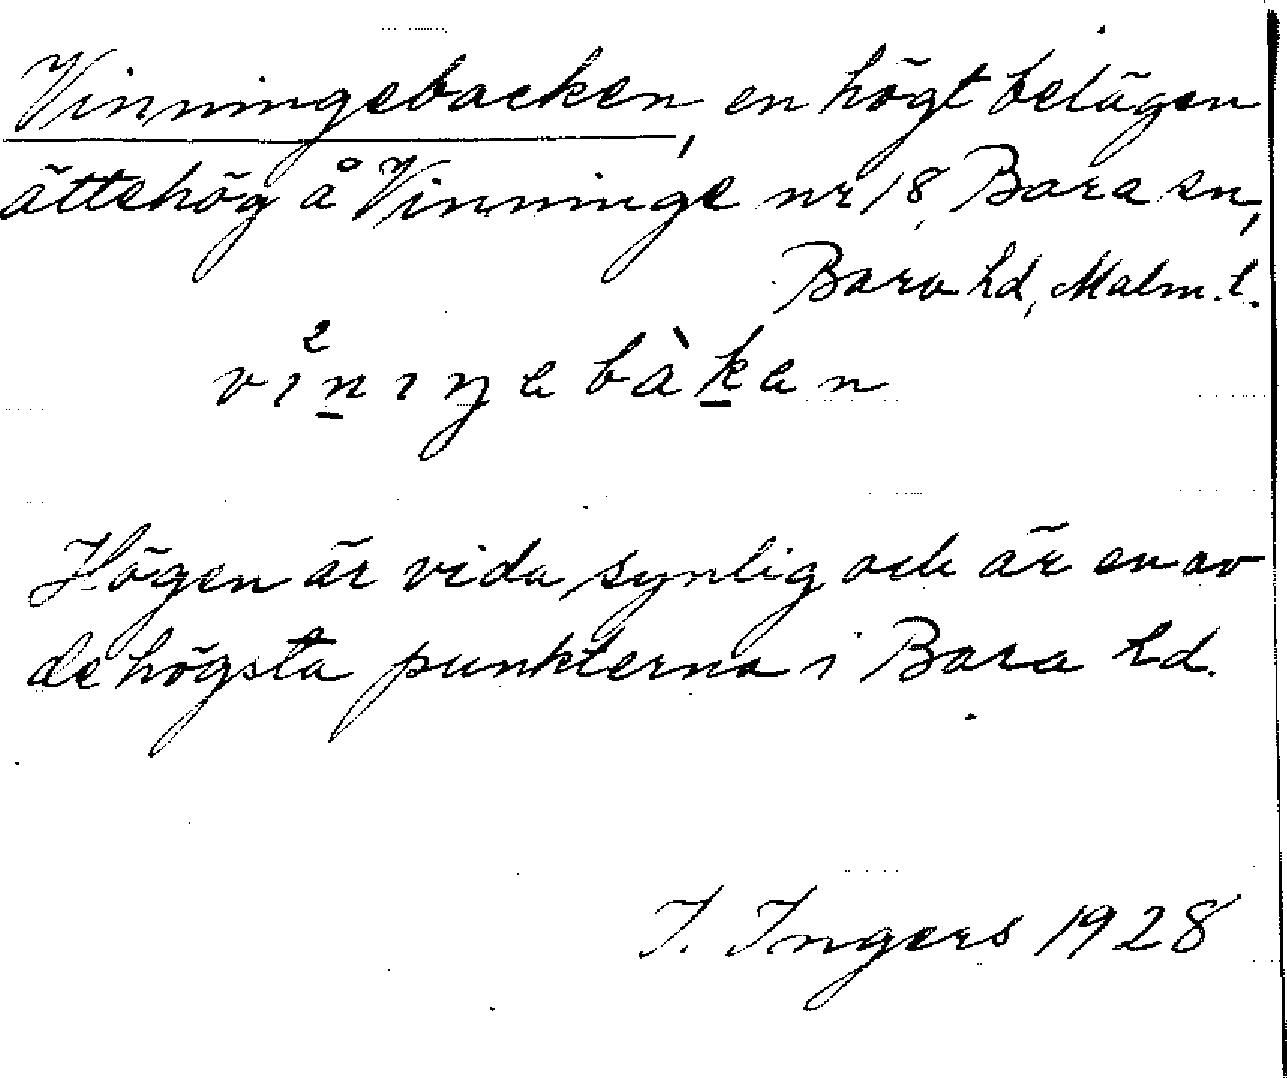 Vinningebacken, en högt belägen
ättehög å Vinninge nr 18, Bara sn,
Bara hd, Malm. l.
vı²n̲ıŋebàk̲en
Högen är vida synlig och är en av
de högsta punkterna i Bara hd.
I. Ingers 1928